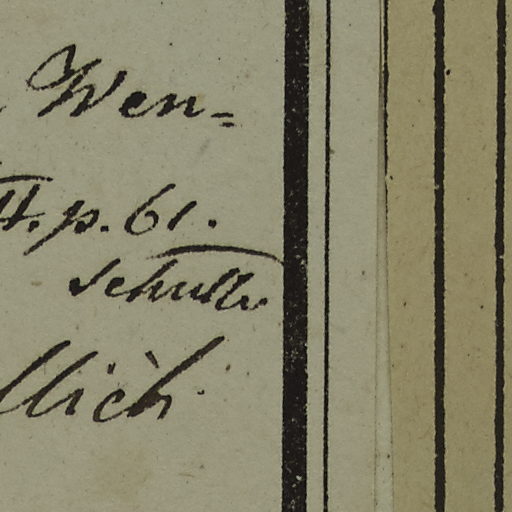 Wen=
II. p. 61.
Schultz
llich